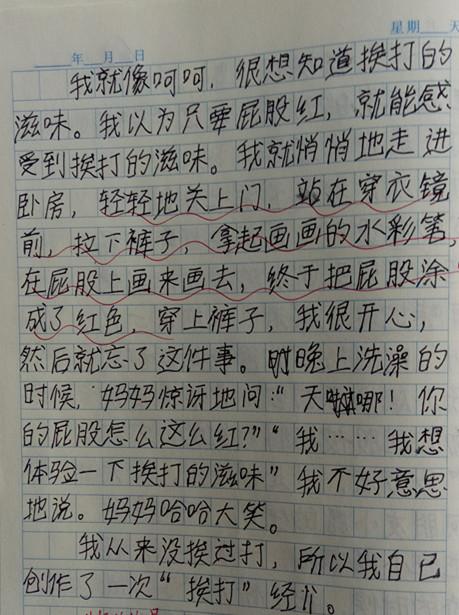 星期 天
年 月 日
我就像呵呵，很想知道挨打的
滋味。我以为只要屁股红，就能感
受到挨打的滋味。我就悄悄地走进
卧房，轻轻地关上门，站在穿衣镜
前，拉下裤子，拿起画画的水彩笔，
在屁股上画来画去，终于把屁股涂
成了红色，穿上裤子，我很开心，
然后就忘了这件事。晚上洗澡的
时候，妈妈惊讶地问：“天哪！你
的屁股怎么这么红？”“我……我想
体验一下挨打的滋味”我不好意思
地说。妈妈哈哈大笑。
我从来没挨过打，所以我自己
创作了一次“挨打”经。